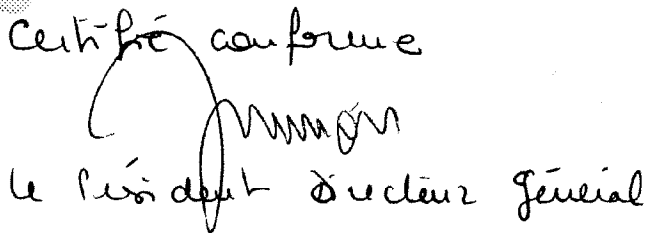 Certifié conforme
le Président Directeur Général